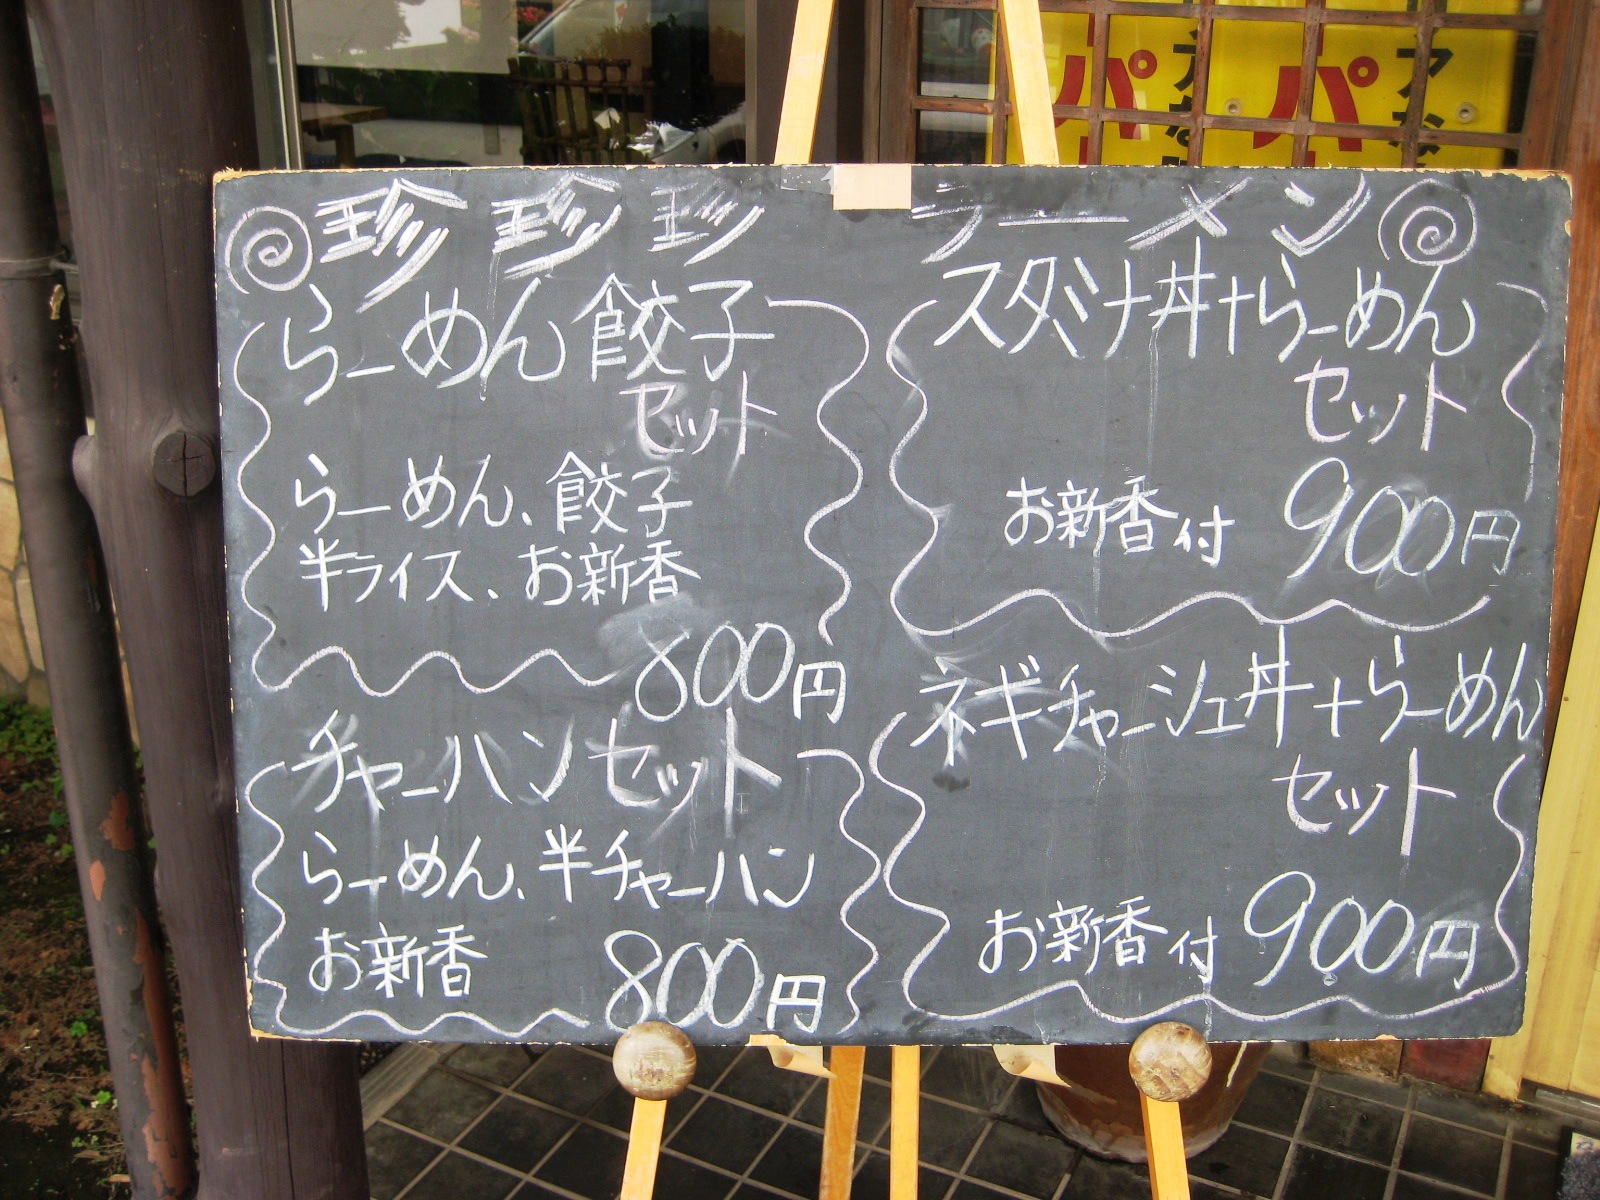 珍珍珍 ラーメン
らーめん餃子
セット
らーめん、餃子
半ライス、お新香
800円
チャーハンセット
らーめん、半チャーハン
お新香 800円
スタミナ丼+らーめん
セット
お新香付 900円
ネギチャーシュ丼+らーめん
セット
お新香付 900円
パ
パ